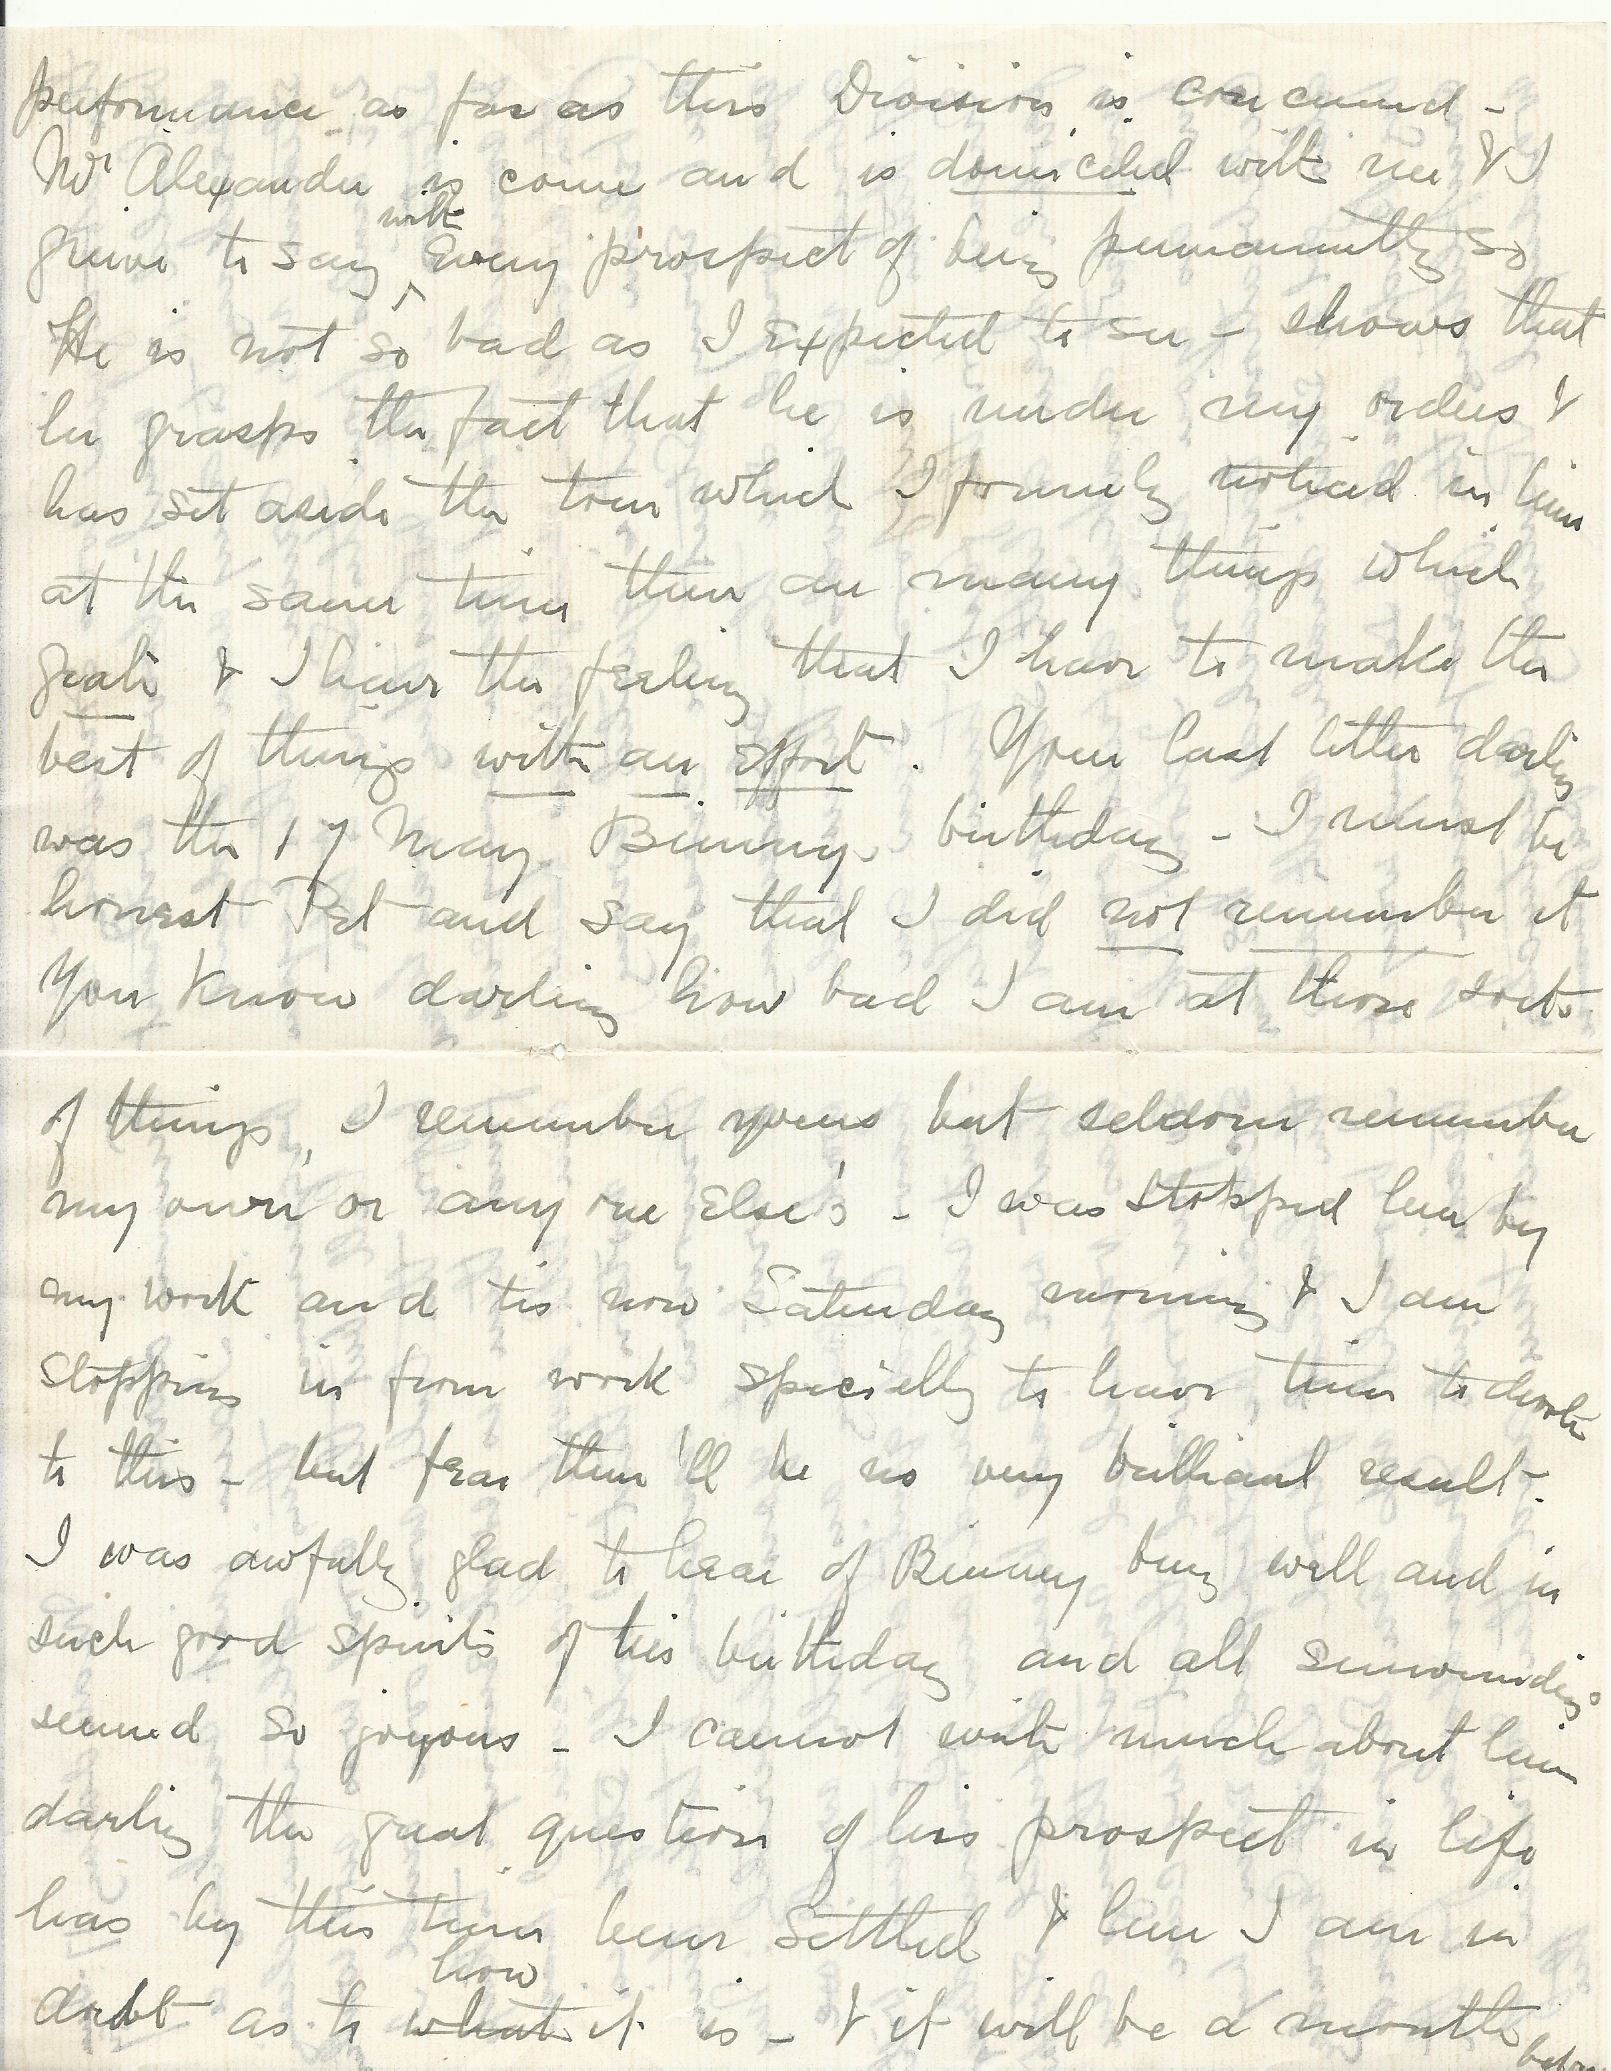 performance as far as this Division is concerned -
Mr Alexander is come and is domiciled with me & I
grieve to say with every prospect of being permanently so
He is not so bad as I expected to see - shows that
he grasps the fact that he is under my orders &
has set aside the tone which I formerly noticed in him
at the same time there are many things which
grate & I have the feeling that I have to make the
best of things with an effort. Your last letter darling
was the 17 May Binny's birthday - I must be
honest Pet and say that I did not remember it
You know darling how bad I am at those sorts
of things, I remember yours but seldom remember
my own or any one Else's - I was stopped here by
my work and tis now Saturday morning & I am
stopping in from work specially to have time to devote
to this - but fear there'll be no very brilliant result -
I was awfully glad to hear of Binney being well and in
such good spirits of his birthday and all surroundings
seemed so joyous - I cannot write much about him
darling the great question of his prospect in life
has by this time been settled & here I am in
doubt as to what how it is - & it will be a month before